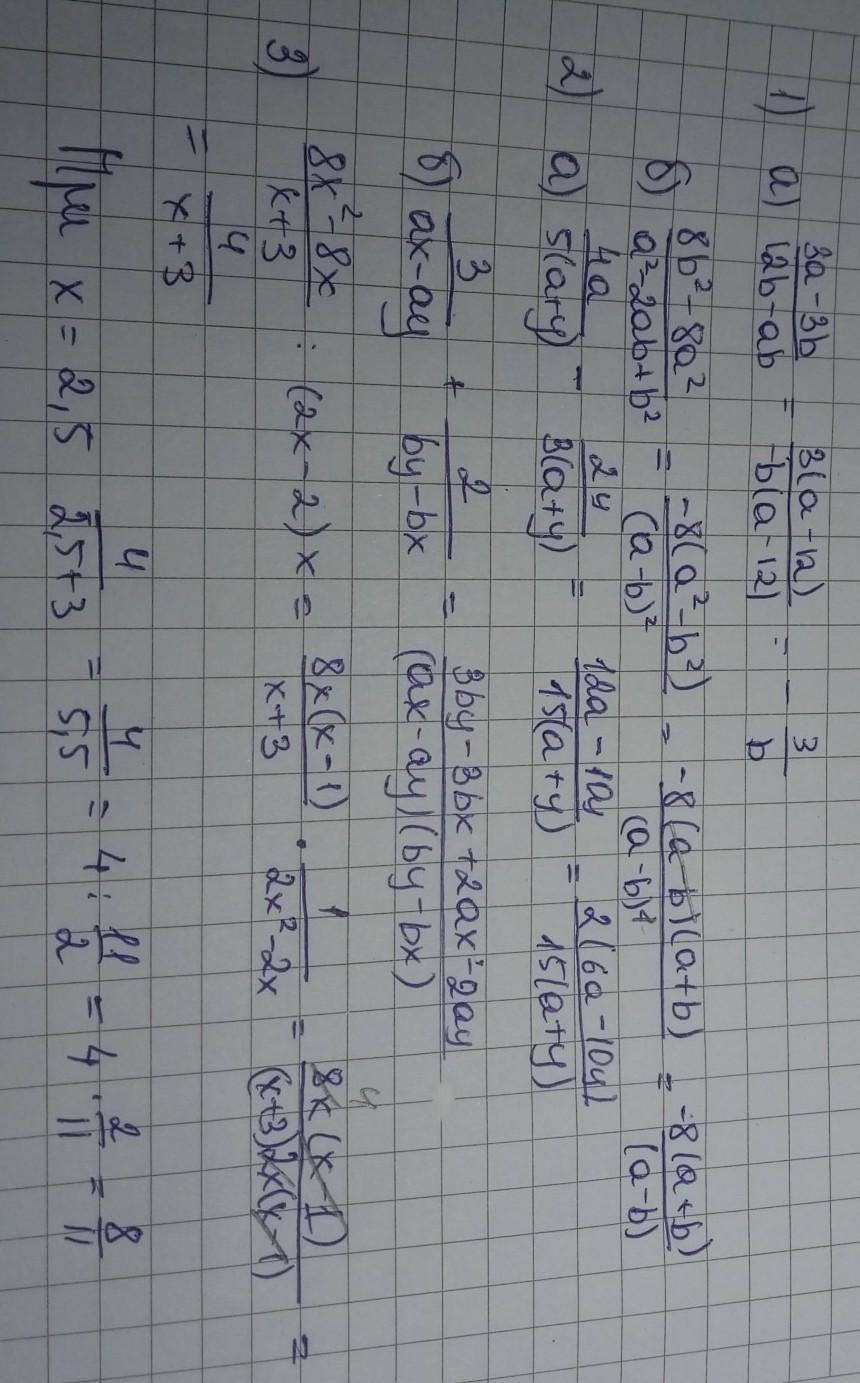 1) а) (3a - 3b)/(12b - ab) = 3(a - 12)/(-b(a - 12)) = - 3/b
б) (8b² - 8a²)/(a² - 2ab + b²) = -8(a² - b²)/(a - b)² = -8(a - b)(a + b)/(a - b)² = -8(a + b)/(a - b)
2) а) 4a/5(a+y) - 2y/3(a+y) = (12a - 10y)/15(a+y) = 2(6a - 10y)/15(a+y)
б) 3/(ax - ay) + 2/(by - bx) = (3by - 3bx + 2ax - 2ay)/(ax - ay)(by - bx)
3) (8x² - 8x)/(x+3) : (2x - 2)x = 8x(x - 1)/(x+3) · 1/(2x² - 2x) = 4 8x(x - 1)/(x+3)2x(x - 1) =
= 4/(x+3)
При x = 2,5 4/(2,5+3) = 4/5,5 = 4 : 11/2 = 4 · 2/11 = 8/11